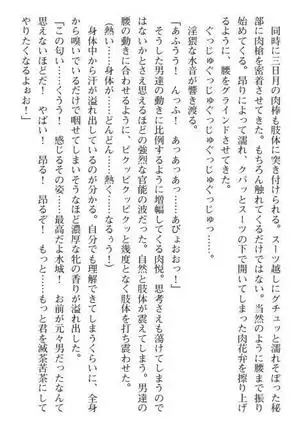 同時に三日月の肉棒も肢体に突き付けられる。スーツ越しにグチュッと濡れそぼった秘
部に肉槍を密着させてきた。もちろん触れてくるだけではない。当然のように腰まで振り
始めてくる。昂りによって濡れ、クパッとスーツの下で開いてしまった肉花弁を擦り上げ
るように、腰をグラインドさせてきた。
ぐっじゅぐっじゅぐっじゅぐっじゅっ……。
淫猥な水音が響き渡る。
「あふうう！　んっふ！　あっあっあっ……あびょおおっ！」
そうした男達の動きに比例するように増幅してくる肉悦。思考さえも蕩けてしまうので
はないかとさえ思えるほどの強烈な官能の波だった。自然と肢体が震えてしまう。男達の
腰の動きに合わせるように、ビクッビクッビクッと幾度となく肢体を打ち震わせた。
（熱い……身体が……どんどん……熱く……なるぅう！）
身体中から汗が溢れ出しているのが分かる。自分でも理解できてしまうくらいに、全身
から嗅いでいるだけで咽せてしまいそうなほど濃厚な牝の香りが溢れ出した。
「この匂い……くうう！　感じるその姿……最高だよ水城！　お前が元々男だったなんて
思えないほどだ！　やばい！　昂る！　昂るぞ！　もっと……もっと君を滅茶苦茶にして
やりたくなるよぉお！」